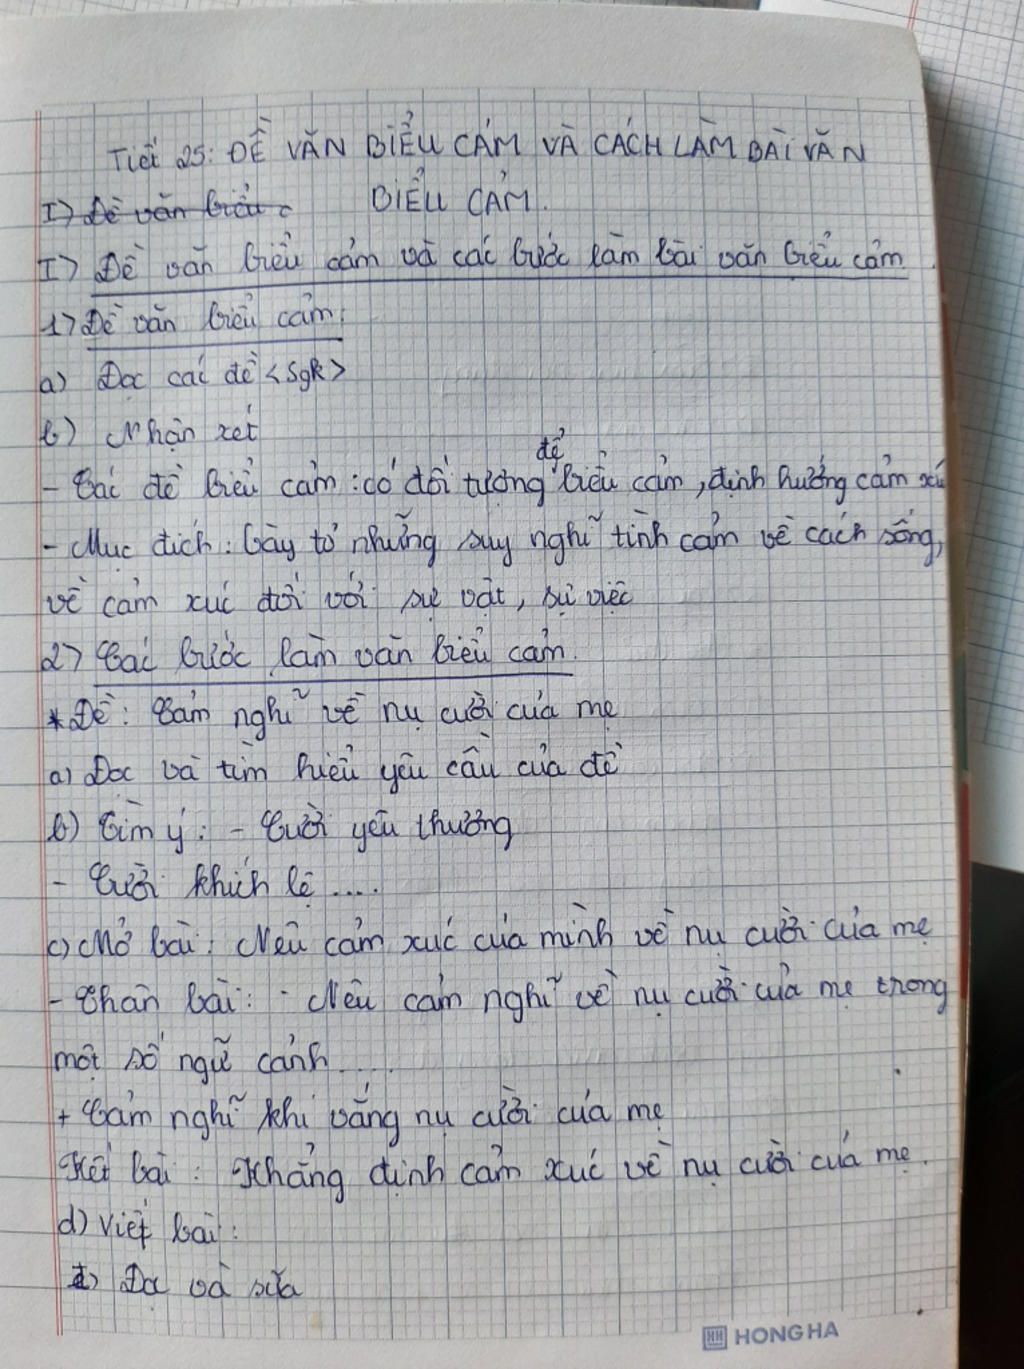 Tiết 25: ĐỀ VĂN BIỂU CẢM VÀ CÁCH LÀM BÀI VĂN
BIỂU CẢM.
I) Đề văn biểu c
I) Đề văn biểu cảm và các bước làm bài văn biểu cảm.
1) Đề văn biểu cảm:
a) Đọc các đề <Sgk>
b) Nhận xét
- Các đề biểu cảm: có đối tượng để biểu cảm, định hướng cảm xú
- Mục đích: bày tỏ những suy nghĩ tình cảm về cách sống,
về cảm xúc đối với sự vật, sự việc
2) Các bước làm văn biểu cảm.
* Đề: Cảm nghĩ về nụ cười của mẹ
a) Đọc và tìm hiểu yêu cầu của đề
b) Tìm ý: - Cười yêu thương
- Cười khích lệ ....
c) Mở bài: Nêu cảm xúc của mình về nụ cười của mẹ
- Thân bài: - Nêu cảm nghĩ về nụ cười của mẹ trong
một số ngữ cảnh....
+ Cảm nghĩ khi vắng nụ cười của mẹ
Kết bài: Khẳng định cảm xúc về nụ cười của mẹ.
d) Viết bài:
Đọc và sửa
HONG HA